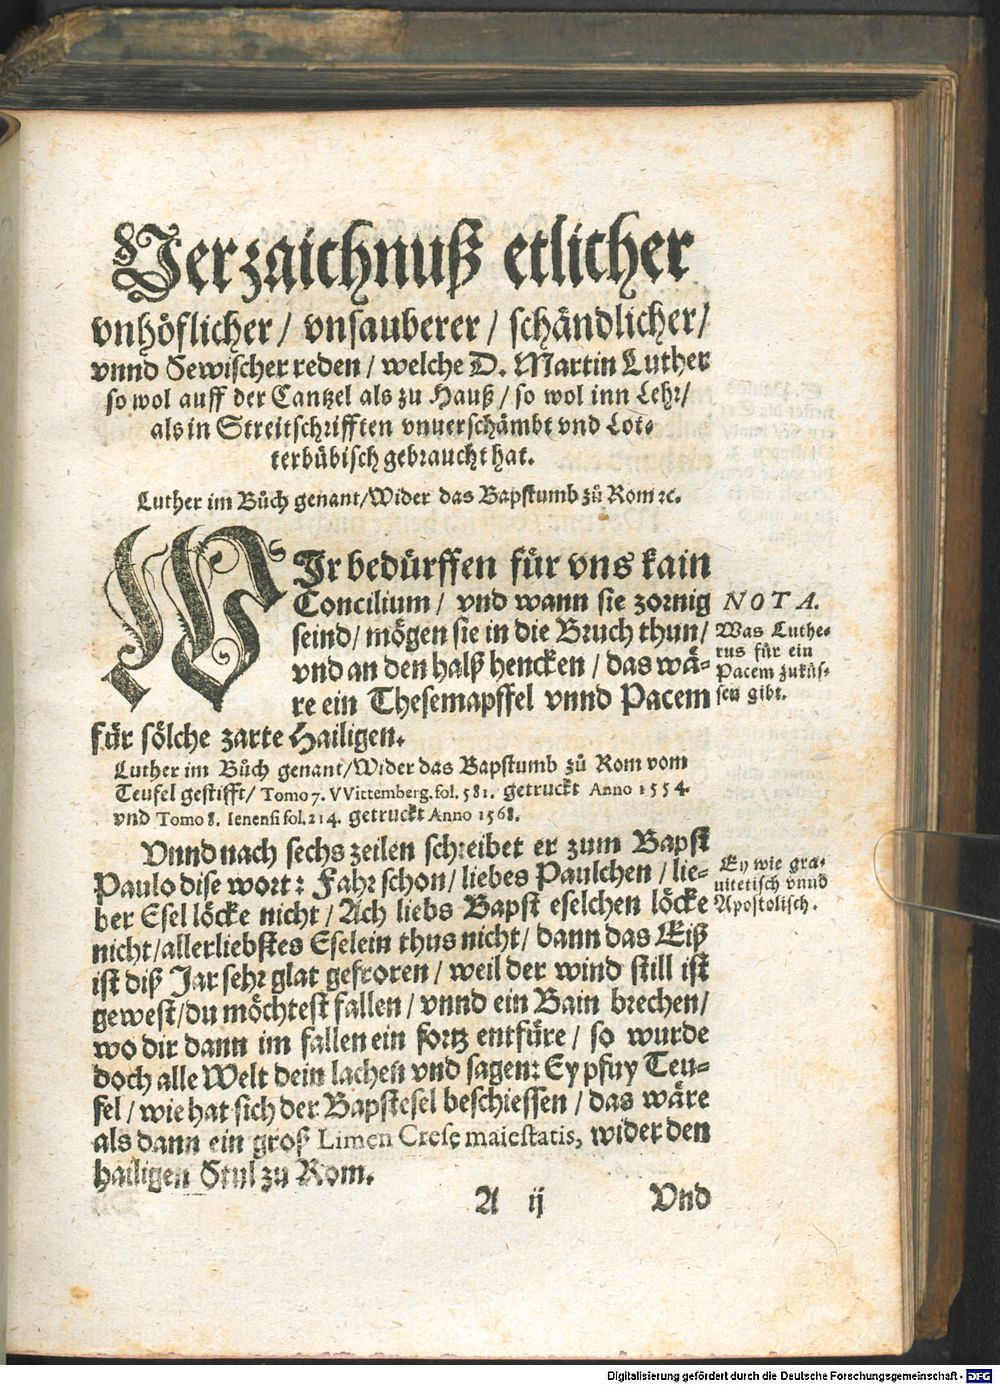 Verzaichnuß etlicher
vnhöflicher / vnsauberer / schändlicher /
vnnd Sewischer reden / welche D. Martin Luther
so wol auff der Cantzel als zu Hauß / so wol inn Lehr /
als in Streitschrifften vnuerschämbt vnd Lot-
terbübisch gebraucht hat.
Luther im Bůch genant / Wider das Bapstumb zů Rom ꝛc.
WIr bedürffen für vns kain
Concilium / vnd wann sie zornig
seind / mögen sie in die Bruch thun /
vnd an den halß hencken / das wä-
re ein Thesemapffel vnnd Pacem
für sölche zarte Hailigen.
NOTA.
Was Luthe-
rus für ein
Pacem zuküs-
sen gibt.
Luther im Bůch genant / Wider das Bapstumb zů Rom vom
Teufel gestifft / Tomo 7. VVittemberg. fol. 581. getruckt Anno 1554.
vnd Tomo 8. Ienensi fol. 214. getruckt Anno 1568.
Vnnd nach sechs zeilen schreibet er zum Bapst
Paulo dise wort: Fahr schon / liebes Paulchen / lie-
ber Esel löcke nicht / Ach liebs Bapst eselchen löcke
nicht / allerliebstes Eselein thus nicht / dann das Eiß
ist diß Jar sehr glat gefroren / weil der wind still ist
gewest / du möchtest fallen / vnnd ein Bain brechen /
wo dir dann im fallen ein fortz entfüre / so wurde
doch alle Welt dein lachen vnd sagen: Ey pfuy Teu-
fel / wie hat sich der Bapstesel beschiessen / das wäre
als dann ein groß Limen Crese maiestatis, wider den
hailigen Stul zu Rom.
Ey wie gra-
uitetisch vnnd
Apostolisch.
A ij
Vnd
Digitalisierung gefördert durch die Deutsche Forschungsgemeinschaft - DFG